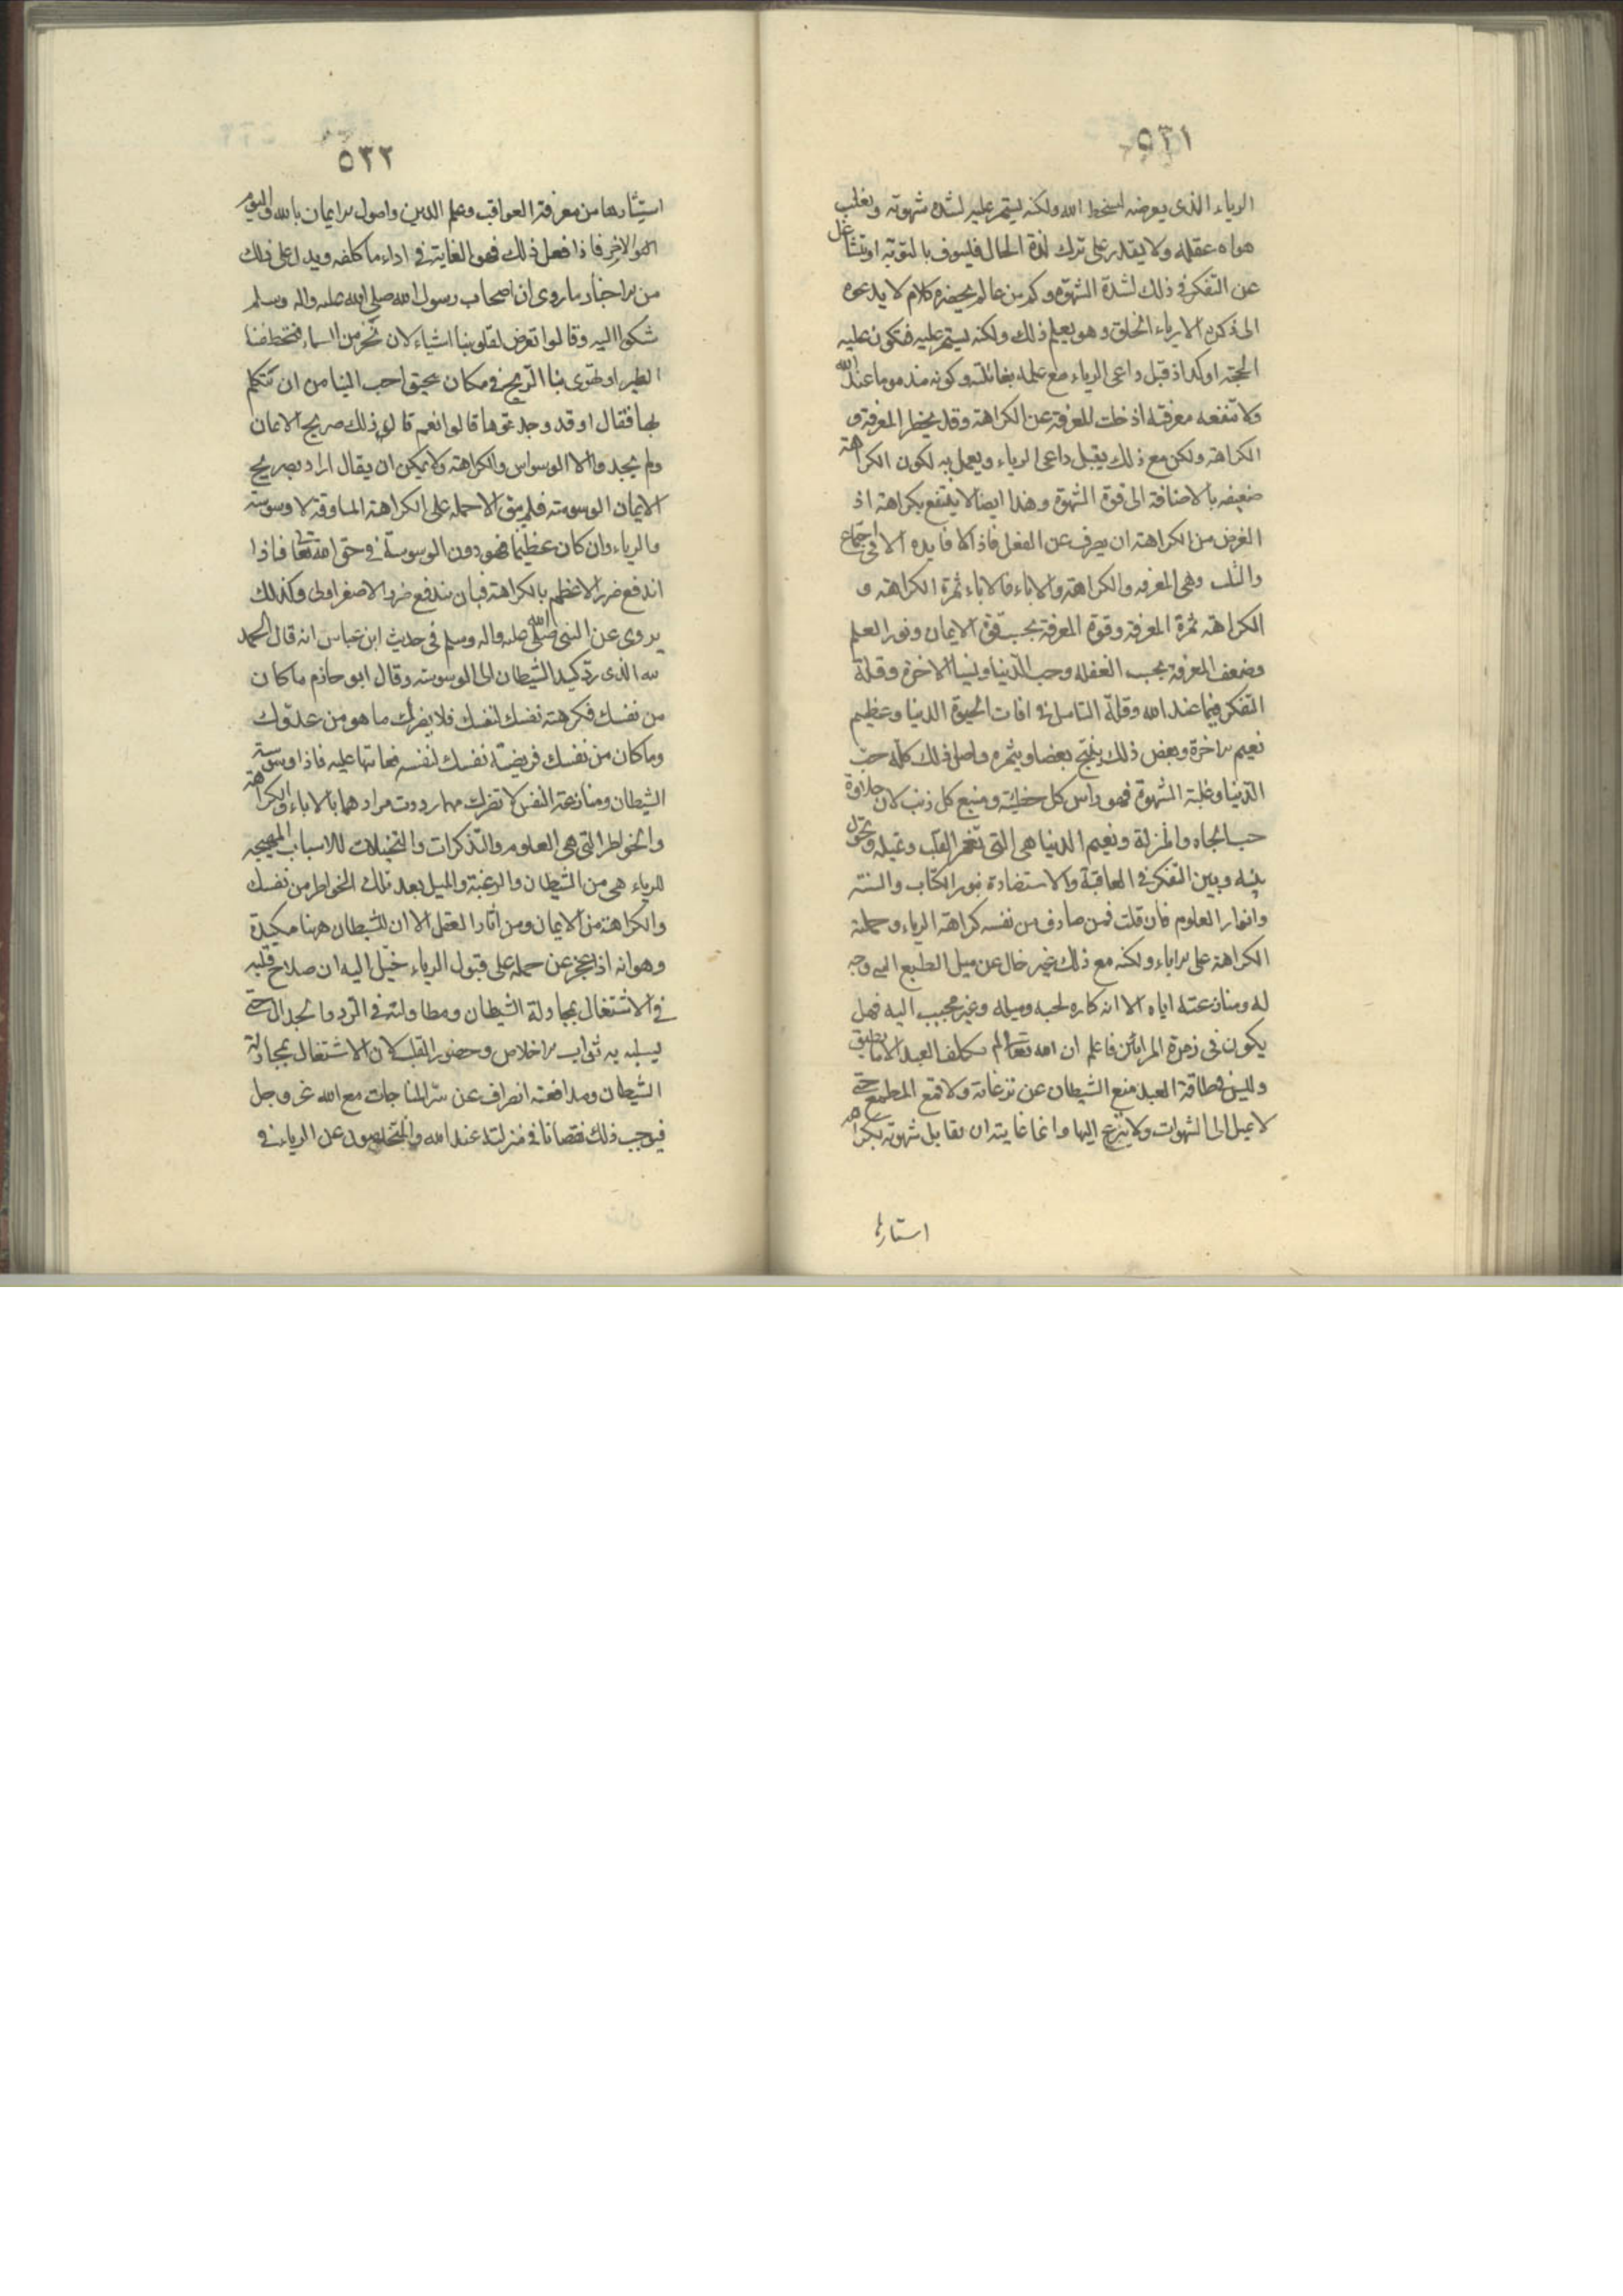 ٥٣١
الرياء الذى يعرضه لسخط الله ولكنه يستمر عليه لشدة شهوته ويغلب
هواه عقله ولا يقدر على ترك لذة الحال فيسوف بالتوبة او يتشاغل
عن التفكر فى ذلك لشدة الشهوة وكم من عالم يحضره كلام لا يدعوه
الى ذكره الا رياء الخلق وهو يعلم ذلك ولكنه يستمر عليه فتكون عليه
الحجة اوكد اذ قبل داعى الرياء مع علمه بغائلته وكونه مذموما عند الله
ولا تنفعه معرفته اذ خلت المعرفة عن الكراهة وقد يحضر المعرفة و
الكراهة ولكن مع ذلك يقبل داعى الرياء ويعمل به لكون الكراهة
ضعيفه بالاضافة الى قوة الشهوة وهذا ايضا لا ينتفع بكراهته اذ
الغرض من الكراهة ان يصرف عن الفعل فاذا لا فايده الا فى اجتماع
والثلث وهى المعرفه والكراهة والاباء فالاباء ثمرة الكراهة و
الكراهة ثمرة المعرفة وقوة المعرفة بحسب قوة الايمان ونور العلم
وضعف المعرفة بحسب الغفله وحب الدنيا ونسيا الاخرة وقلة
التفكر فيما عند الله وقلة التامل فى افات الحيوة الدنيا وعظيم
نعيم الاخرة وبعض ذلك ينتج بعضا ويثمره واصل ذلك كله حب
الدنيا وغلبة الشهوة فهو راس كل خطيئة ومنبع كل ذنب لان حلاوة
حب الجاه والمنزلة ونعيم الدنيا هى التى تغمر القلب وتميله وتحول
بينه وبين التفكر فى العاقبة والاستضاءة بنور الكتاب والسنة
وانوار العلوم فان قلت فمن صادف من نفسه كراهة الرياء وحملته
الكراهة على الاباء ولكنه مع ذلك غير خال عن ميل الطبع اليه وحبه
له ومنازعته اياه الا انه كاره لحبه وميله وغير مجيب اليه فهل
يكون فى زمرة المرائين فاعلم ان الله تعالى لم يكلف العبد الا ما يطيق
وليس فى طاقة العبد منع الشيطان عن نزغاته ولا قمع الطبع حتى
لا يميل الى الشهوات ولا ينزع اليها وانما غايته ان يقابل شهوته بكراهة
استثارها
٥٣٢
استثارها من معرفة العواقب وعلم الدين واصول الايمان بالله واليوم
الاخر فاذا فعل ذلك فهو الغاية فى اداء ما كلفه ويدل على ذلك
من الاخبار ما روى ان اصحاب رسول الله صلى الله عليه واله وسلم
شكوا اليه وقالوا تعرض لقلوبنا اشياء لان نخر من السماء فتخطفنا
الطير او تهوى بنا الريح فى مكان سحيق احب الينا من ان نتكلم
بها فقال اوقد وجدتموها قالوا نعم قالو ذلك صريح الايمان
ولم يجدوا الا الوسواس والكراهة ولا يمكن ان يقال اراد بصريح
الايمان الوسوسة فلم يبق الا حمله على الكراهة المساوقة لا وسوسة
والرياء وان كان عظيما فهو دون الوسوسة فى حق الله تعالى فاذا
اندفع ضرر الاعظم بالكراهة فبان يندفع ضرر الاصغر اولى وكذلك
يروى عن النبى صلى الله عليه واله وسلم فى حديث ابن عباس انه قال الحمد
لله الذى رد كيد الشيطان الى الوسوسة وقال ابو حازم ما كان
من نفسك فكرهته نفسك لنفسك فلا يضرك ما هو من عدوك
وما كان من نفسك فرضيته نفسك لنفسه فعاتبها عليه فاذا وسوسة
الشيطان ومنازعة النفس لا تضرك مهما رددت مرادهما بالاباء والكراهة
والخواطر التى هى العلوم والتذكرات والتخيلات للاسباب المهيجه
للرياء هى من الشيطان والرغبة والميل بعد تلك الخواطر من نفسك
والكراهة من الايمان ومن اثار العقل الا ان للشيطان ههنا مكيدة
وهو انه اذا عجز عن حمله على قبول الرياء خيل اليه ان صلاح قلبه
فى الاشتغال بمجادلة الشيطان ومطاولته فى الرد والجدال حتى
يسلبه به ثواب الاخلاص وحضور القلب لان الاشتغال بمجادلة
الشيطان ومدافعته انصراف عن سر المناجات مع الله عز وجل
فيوجب ذلك نقصانا فى منزلته عند الله والمتخلصون عن الرياء فى